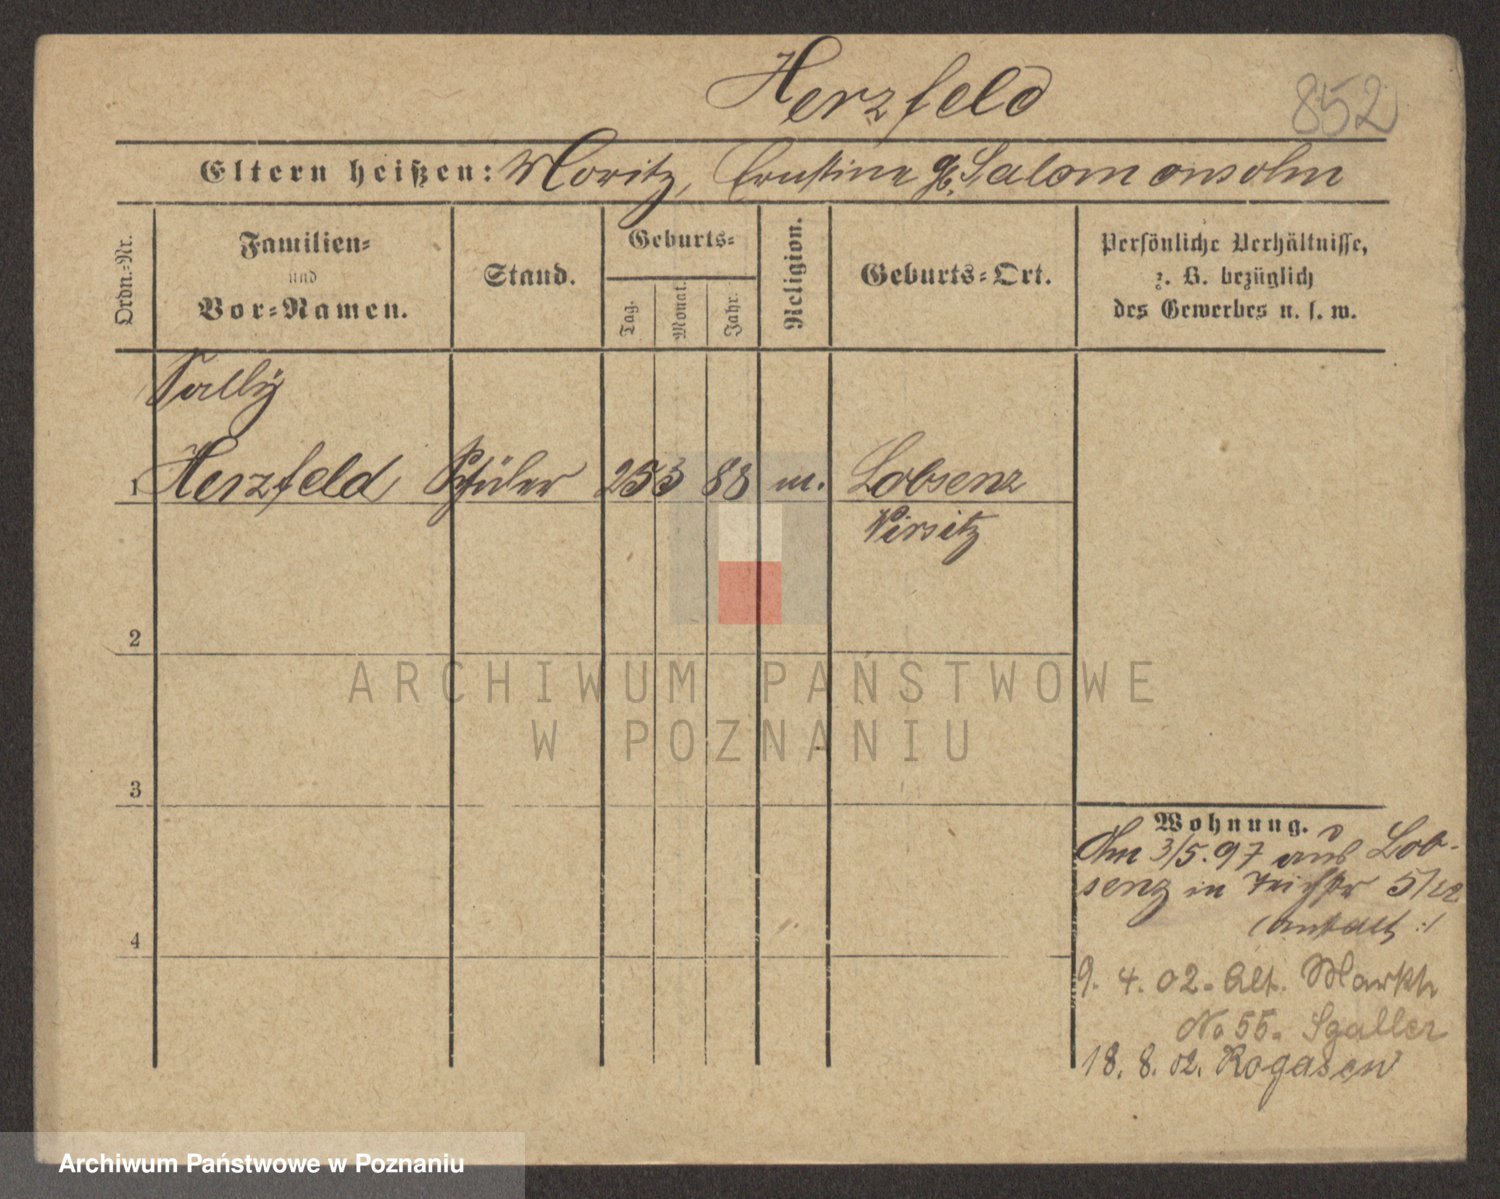 Herzfeld
852
Eltern heißen: Moritz, Ernstine g. Salomonsohn
Ordn.-Nr.
Familien-
und
Vor-Namen.
Stand.
Geburts-
Tag.
Monat.
Jahr.
Religion.
Geburts-Ort.
Persönliche Verhältnisse,
z. B. bezüglich
des Gewerbes u. s. w.
Sally
1 Herzfeld Schüler 25 3 88 m. Lobsenz
Wirsitz
2
3
4
Wohnung.
Am 3/5.97 aus Lob-
senz in 5/
9. 4. 02. Alt. Markt
No 55. Sgaller
18. 8. 02. Rogasen
ARCHIWUM PAŃSTWOWE
W POZNANIU
Archiwum Państwowe w Poznaniu